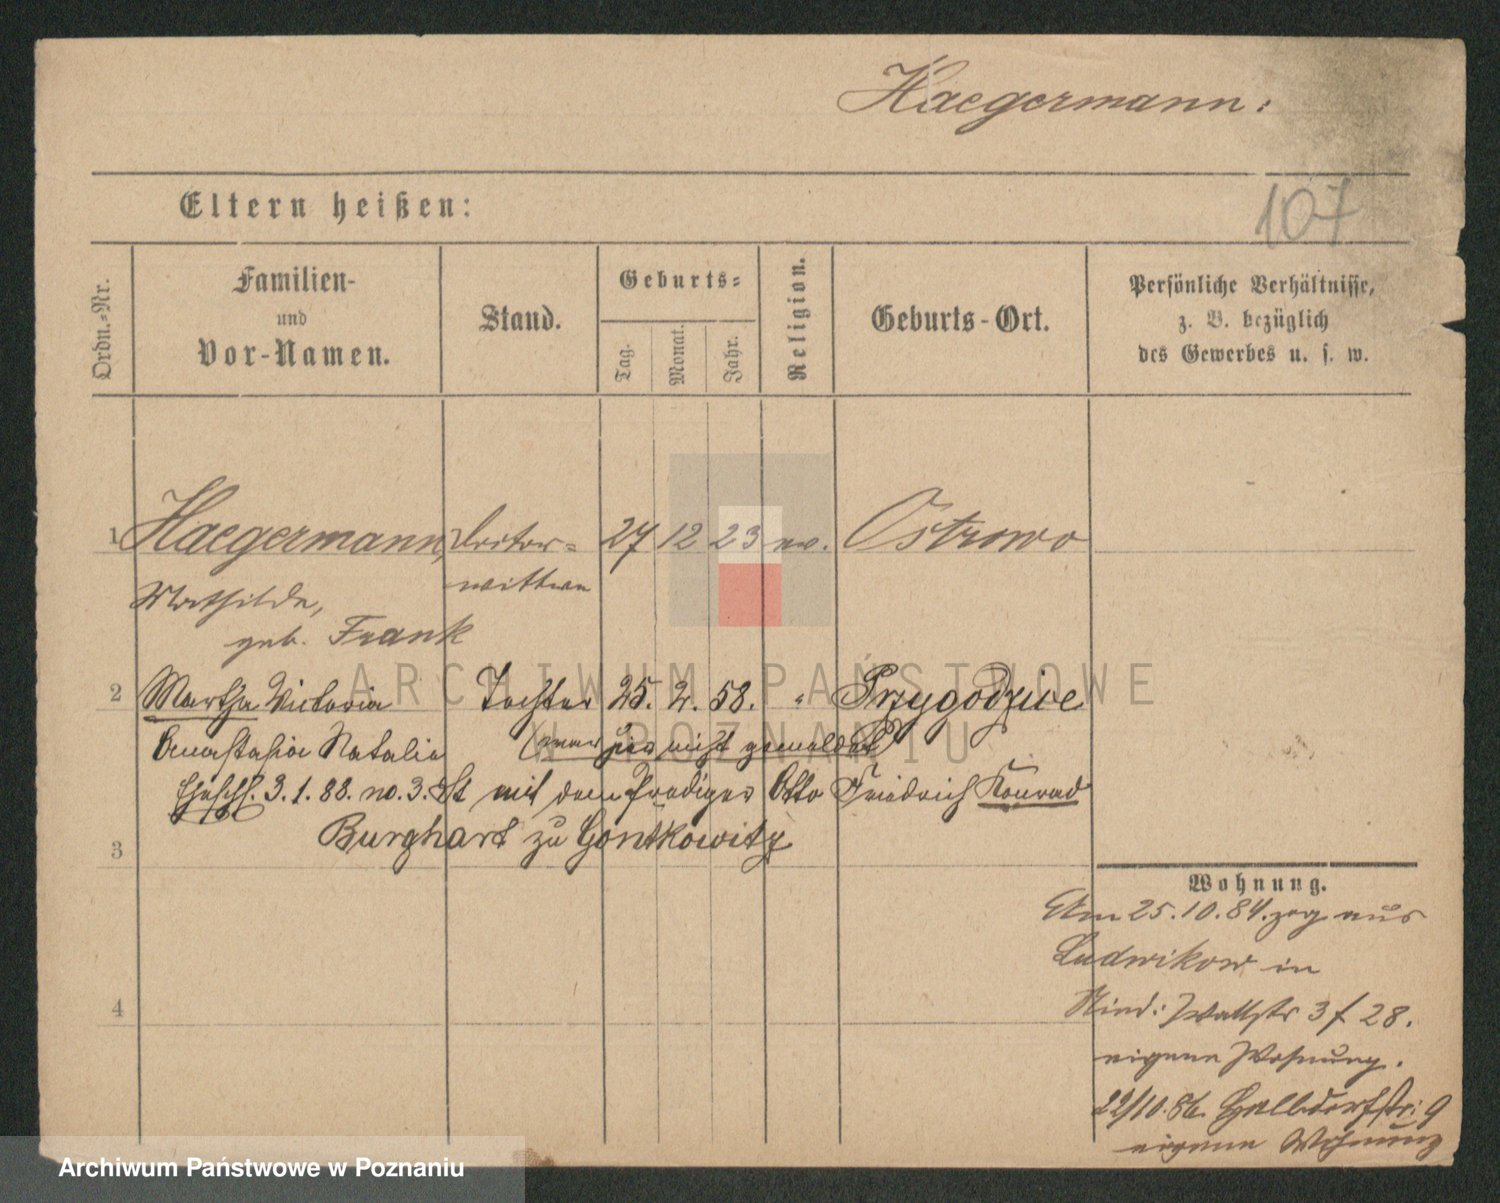 Haegermann:
107
Eltern heißen:
Ordn.-Nr.
Familien-
und
Vor-Namen.
Stand.
Geburts-
Tag.
Monat.
Jahr.
Religion.
Geburts-Ort.
Persönliche Verhältnisse,
z. B. bezüglich
des Gewerbes u. s. w.
1 Haegermann, 27 12 23 ev. Ostrowo
wittwe
Mathilde,
geb. Frank
2 Martha Victoria Tochter 25. 2. 58. " Przygodzice
Anastasia Natalie (war hier nicht gemeldet)
3. 1. 88. no. 3. St mit dem Prediger Otto Friedrich Konrad
Burghart zu Gontkowitz
3
Wohnung.
Am 25.10.84. zog aus
Ludwikow in
Wallstr 3 f 28.
eigene Wohnung.
4
22/10.86. Halbdorfstr. 9
eigene Wohnung
ARCHIWUM PAŃSTWOWE
W POZNANIU
Archiwum Państwowe w Poznaniu